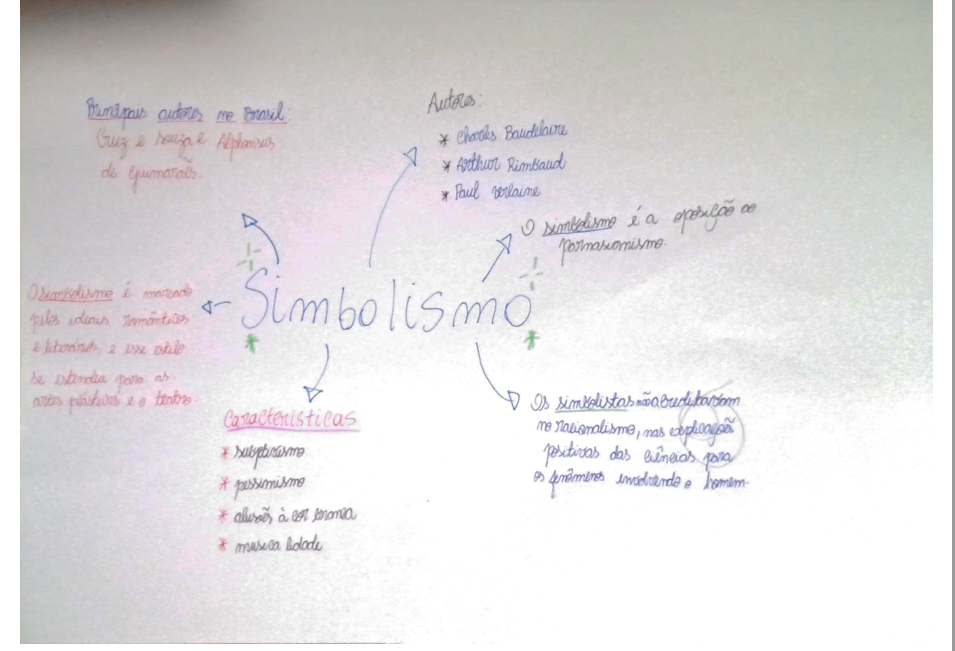 Principais autores no Brasil:
Cruz e Souza e Alphonsus
de Guimarães.
Autores:
* Charles Baudelaire
* Arthur Rimbaud
* Paul Verlaine
O simbolismo é a oposição ao
parnasionismo.
Simbolismo
O simbolismo é marcado
pelos ideais românticos
e literários, e esse estilo
se estendia para as
artes plásticas e o teatro.
Características
* subjetivismo
* pessimismo
* alusões à cor branca
* musicalidade
Os simbolistas não acreditavam
no racionalismo, nas explicações
positivas das ciências para
os fenômenos envolvendo o homem.